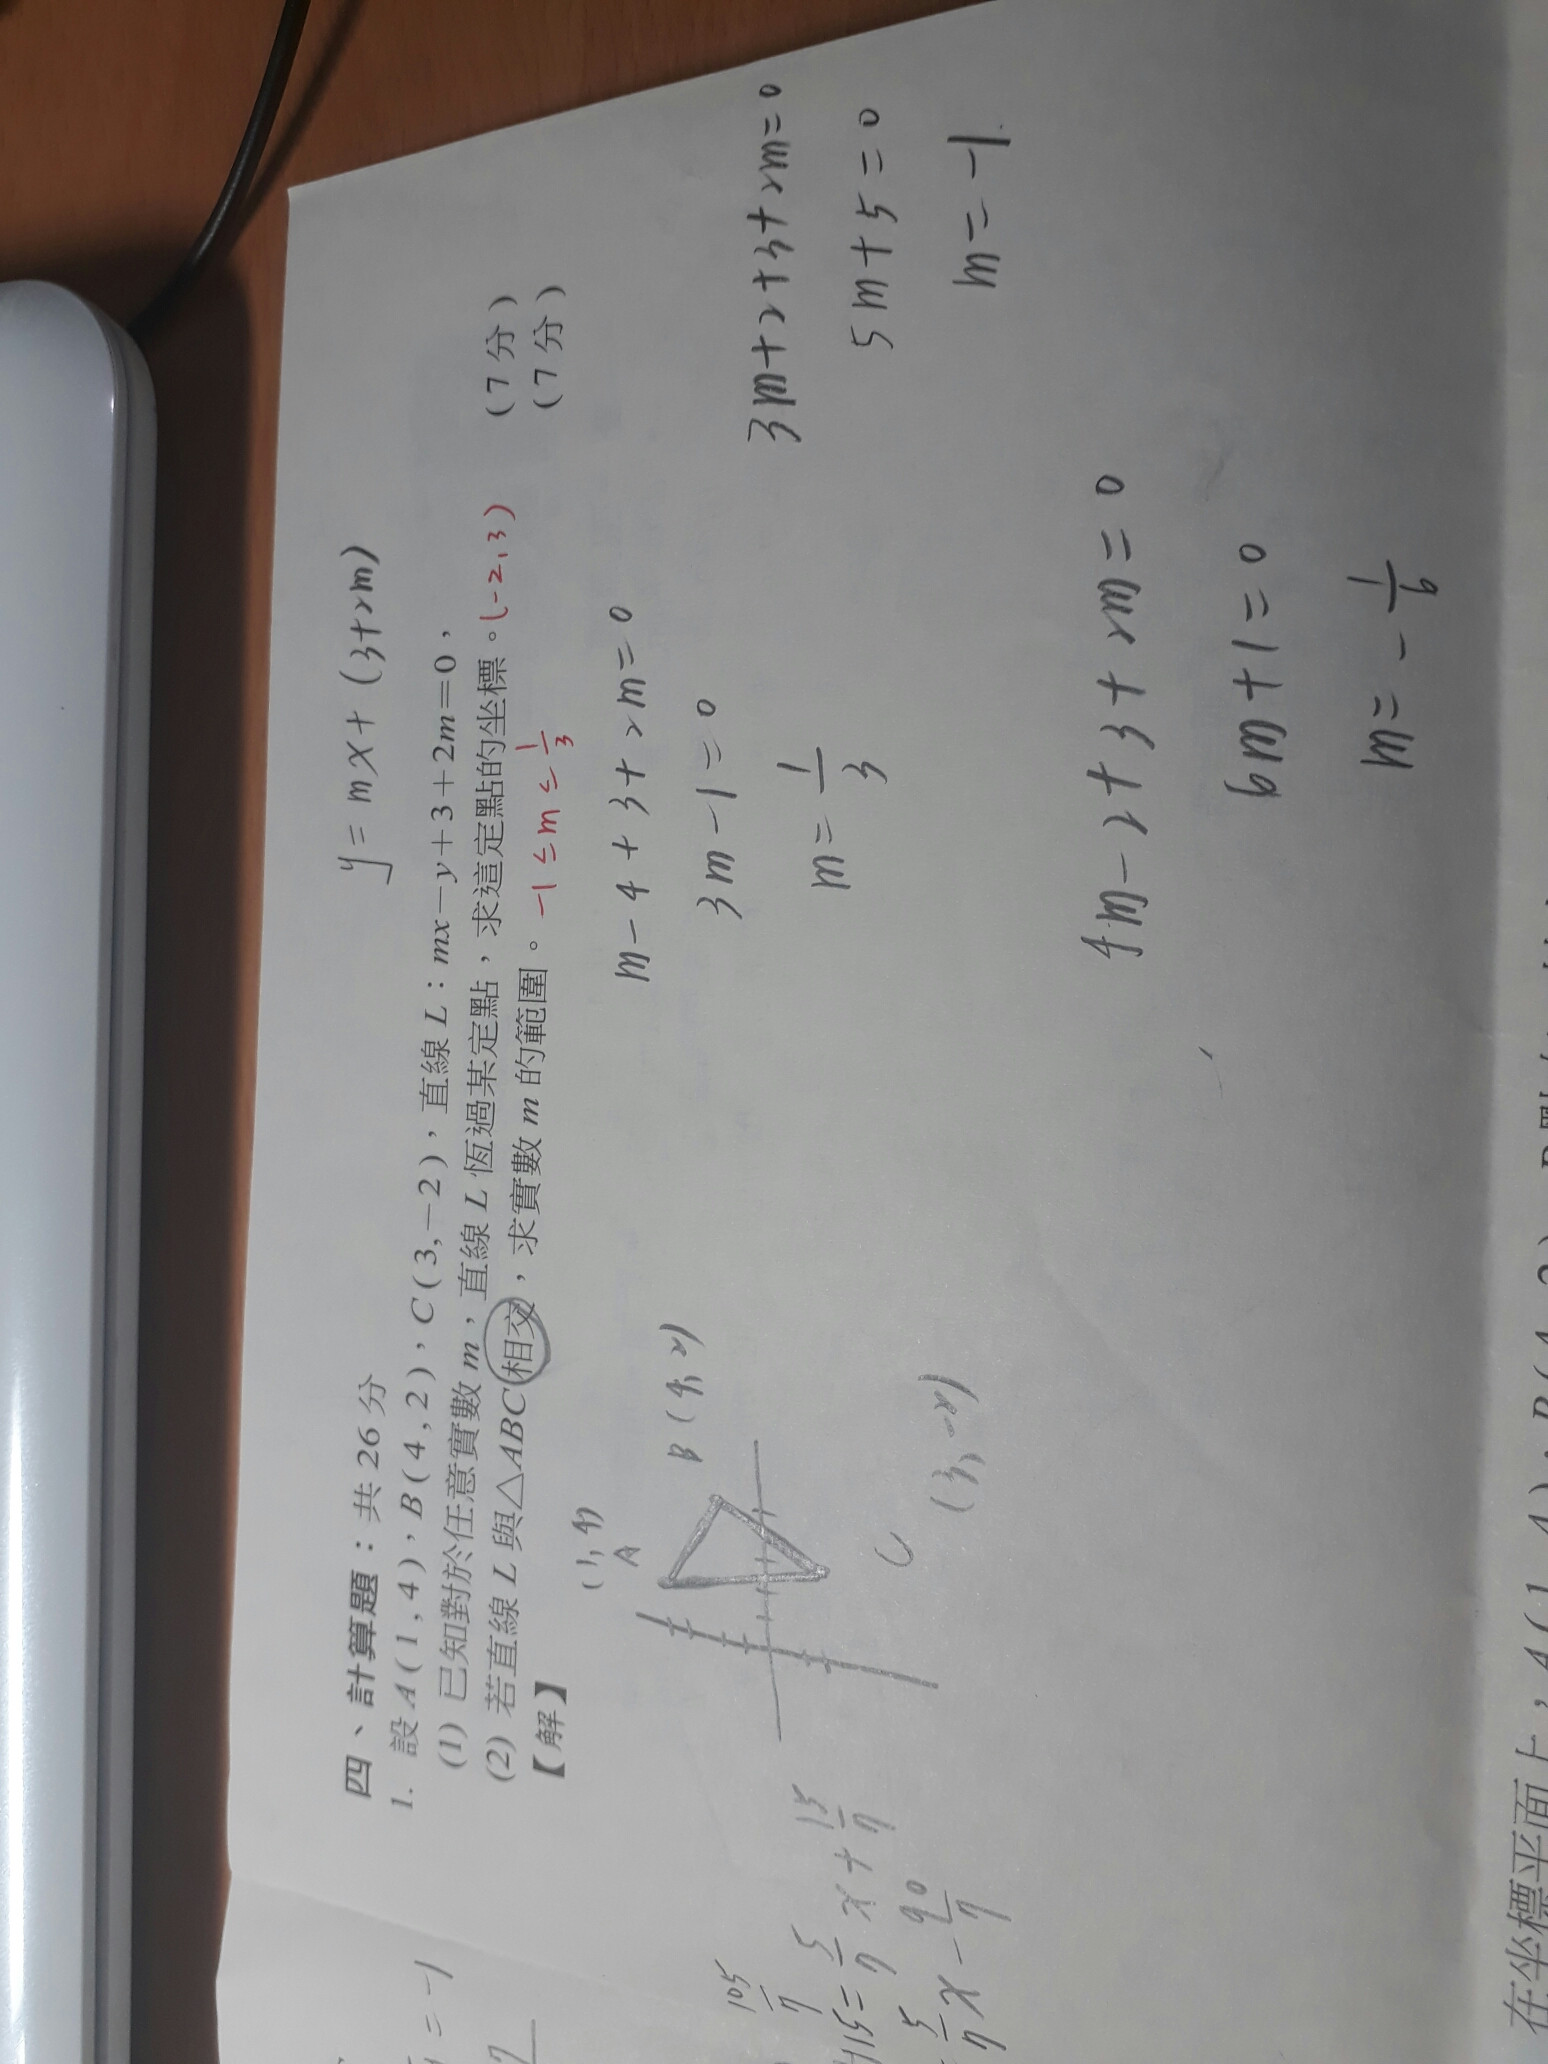 y = mx + (3+2m)
四、計算題：共 26 分
1. 設 A(1,4)，B(4,2)，C(3,-2)，直線 L：mx-y+3+2m=0，
(1) 已知對於任意實數 m，直線 L 恆過某定點，求這定點的坐標。(-2,3) (7分)
(2) 若直線 L 與△ABC 相交，求實數 m 的範圍。 -1 ≤ m ≤ 1/3 (7分)
【解】
(1,4)
A
B (4,2)
C
(3,-2)
m-4+3+2m=0
3m-1=0
m = 1/3
3m+2+3+2m=0
5m+5=0
m=-1
4m-2+3+2m=0
6m+1=0
m = -1/6
= -1
105/7
5/7 x + 15/7
5/7 x - 90/7
在坐標平面上，A(1,4)，B(4,2)